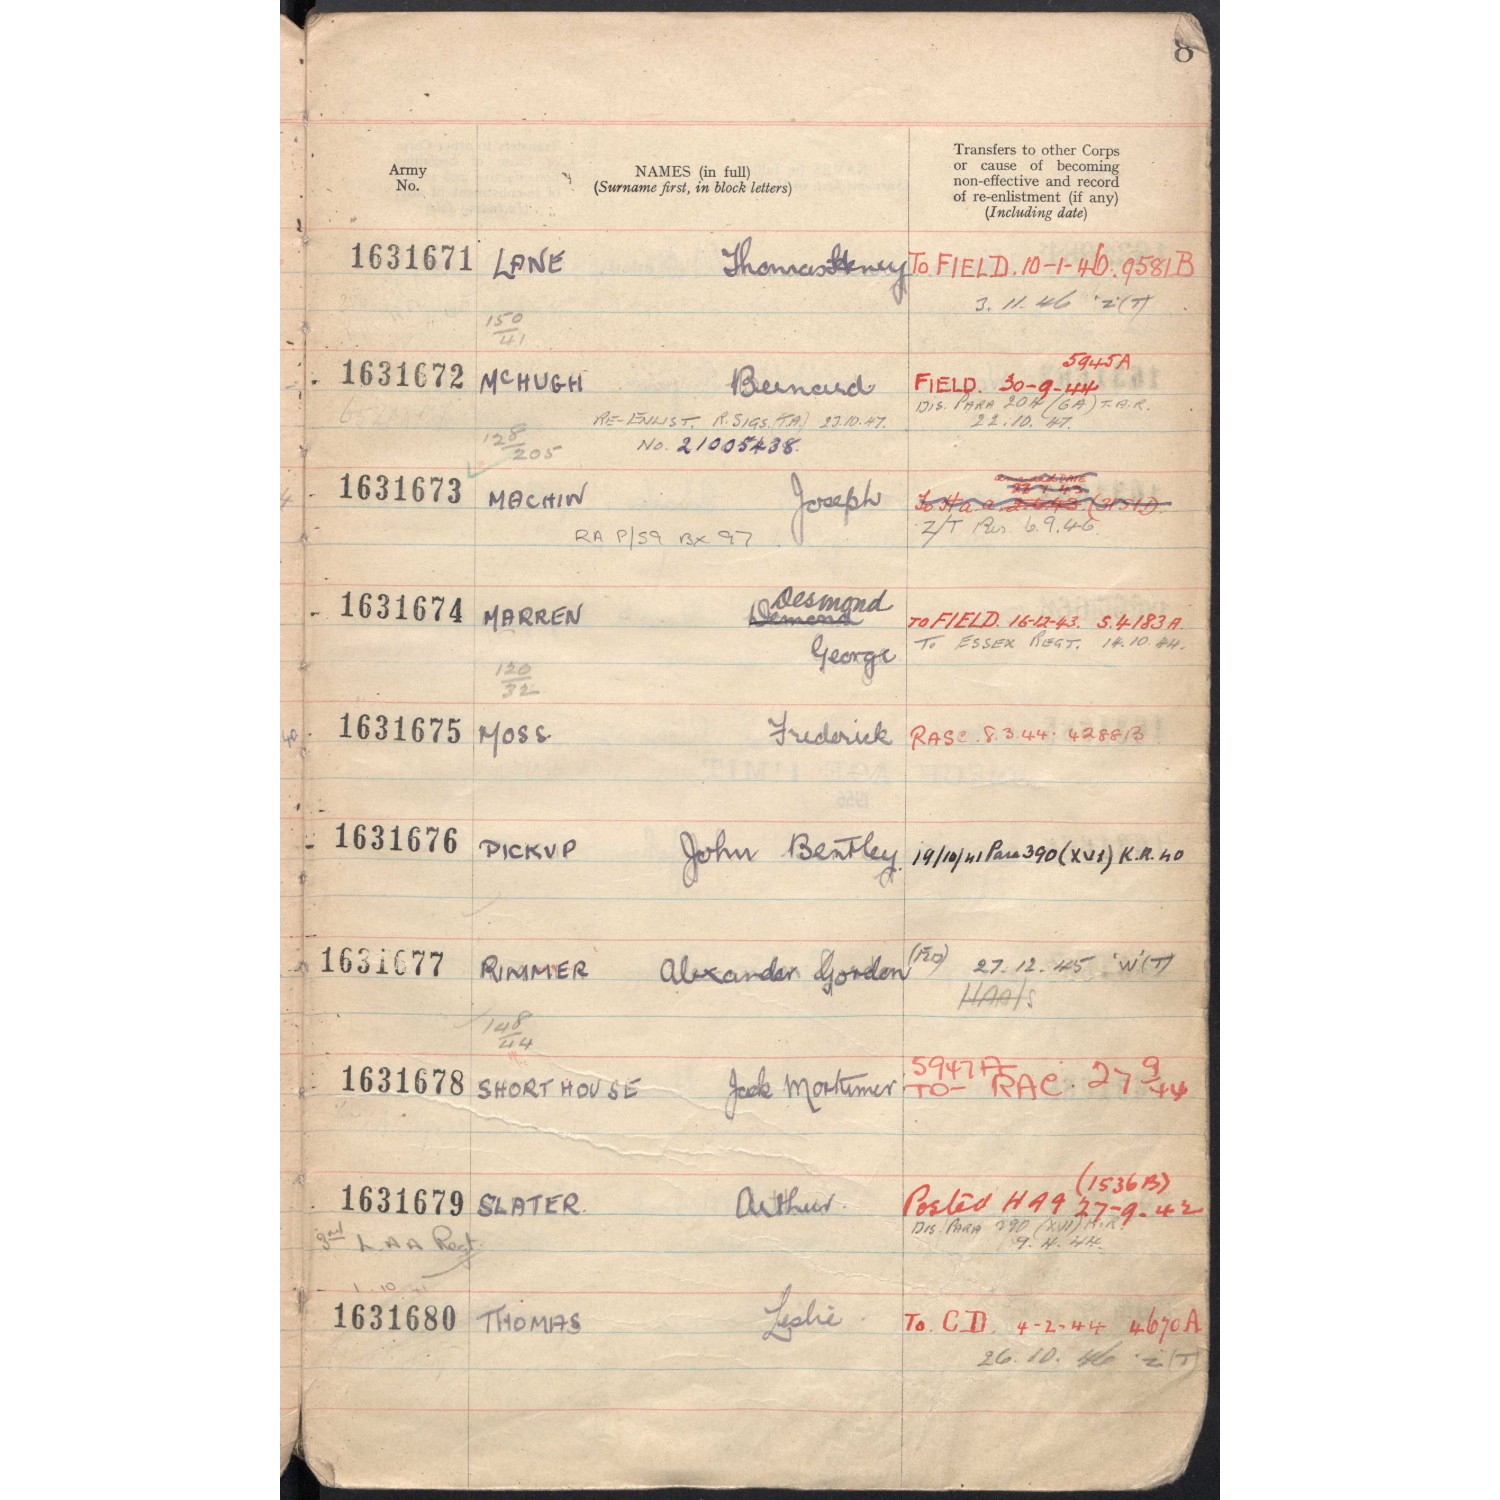 8
Army No.
NAMES (in full)
(Surname first, in block letters)
Transfers to other Corps
or cause of becoming
non-effective and record
of re-enlistment (if any)
(Including date)
1631671 LANE Thomas Henry To FIELD. 10-1-46. 9581B
3. 11. 46 'Z'(T)
150
41
5945A
1631672 McHUGH Bernard FIELD. 30-9-44
DIS. PARA 204 (6A) T.A.R.
RE-ENLIST. R.SIGS.(T.A.) 23.10.47. 22. 10. 47.
128
205
No. 21005438.
1631673 MACHIN Joseph To H.a.a. 2.6.43. (3151D)
Z/T Res 6.9.46.
RA P/59 Bx 97
Desmond
1631674 MARREN Demond TO FIELD. 16-12-43. S.4183A
George To ESSEX REGT. 14.10.44.
120
32
1631675 MOSS Frederick RASC. 8.3.44. 4288B
1631676 PICKUP John Bentley. 19/10/41 Para 390 (XVI) K.R. 40
1631677 RIMMER Alexander Gordon 27. 12. 45 'W'(T)
HAA/S
148
44
5947A
1631678 SHORTHOUSE Jack Mortimer TO- RAC. 27 9/44
(1536B)
1631679 SLATER. Arthur. Posted HAA 27-9-42
DIS. PARA 390 (XVI) K.R.
3rd L.A.A Regt. 9. 4. 44.
1631680 THOMAS Leslie. To. C.D. 4-2-44 4670A
26. 10. 46 'Z'(T)